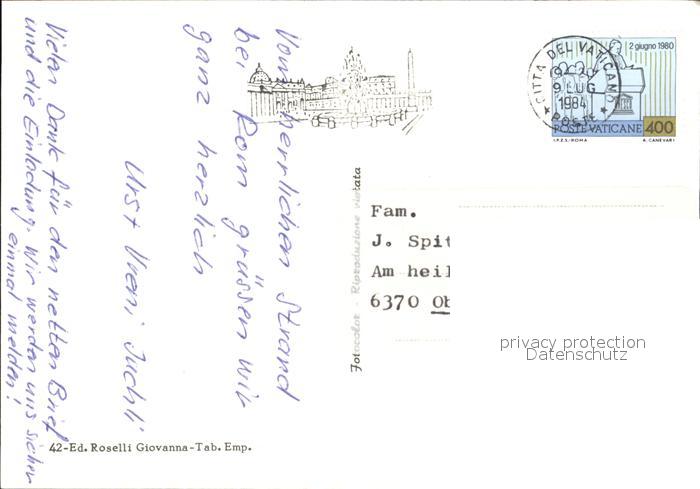 Vom herrlichen Strand
bei Rom grüssen wir
ganz herzlich
Urs + Vreni Juchli
Vielen Dank für den netten Brief
und die Einladung. Wir werden uns sicher
einmal melden!
42-Ed. Roselli Giovanna-Tab. Emp.
Fotocolor - Riproduzione vietata
CITTA DEL VATICANO
19-20
9 LUG
1984
POSTE
2 giugno 1980
POSTE VATICANE 400
I.P.Z.S.-ROMA A. CANEVARI
Fam.
J. Spit
Am heil
6370 Ob
privacy protection
Datenschutz